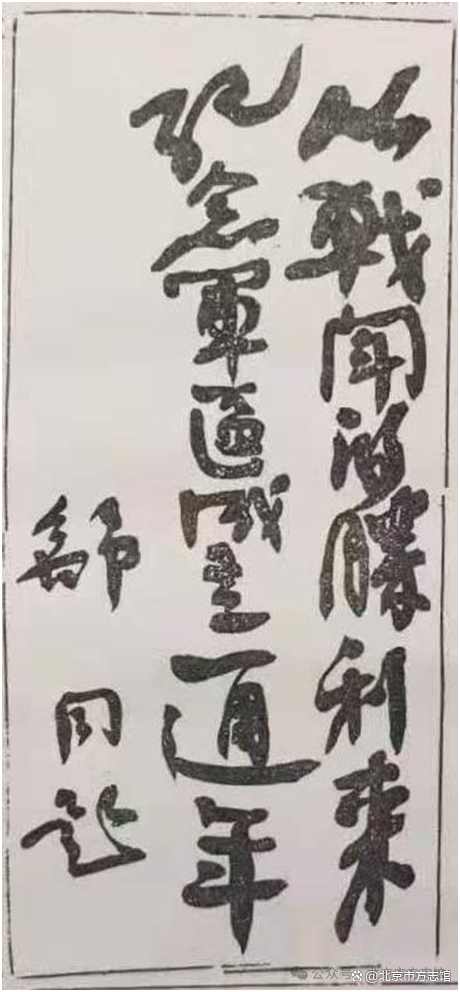 以戰鬥的勝利來
紀念軍區成立一週年
舒同題
公众号
@北京市方志馆